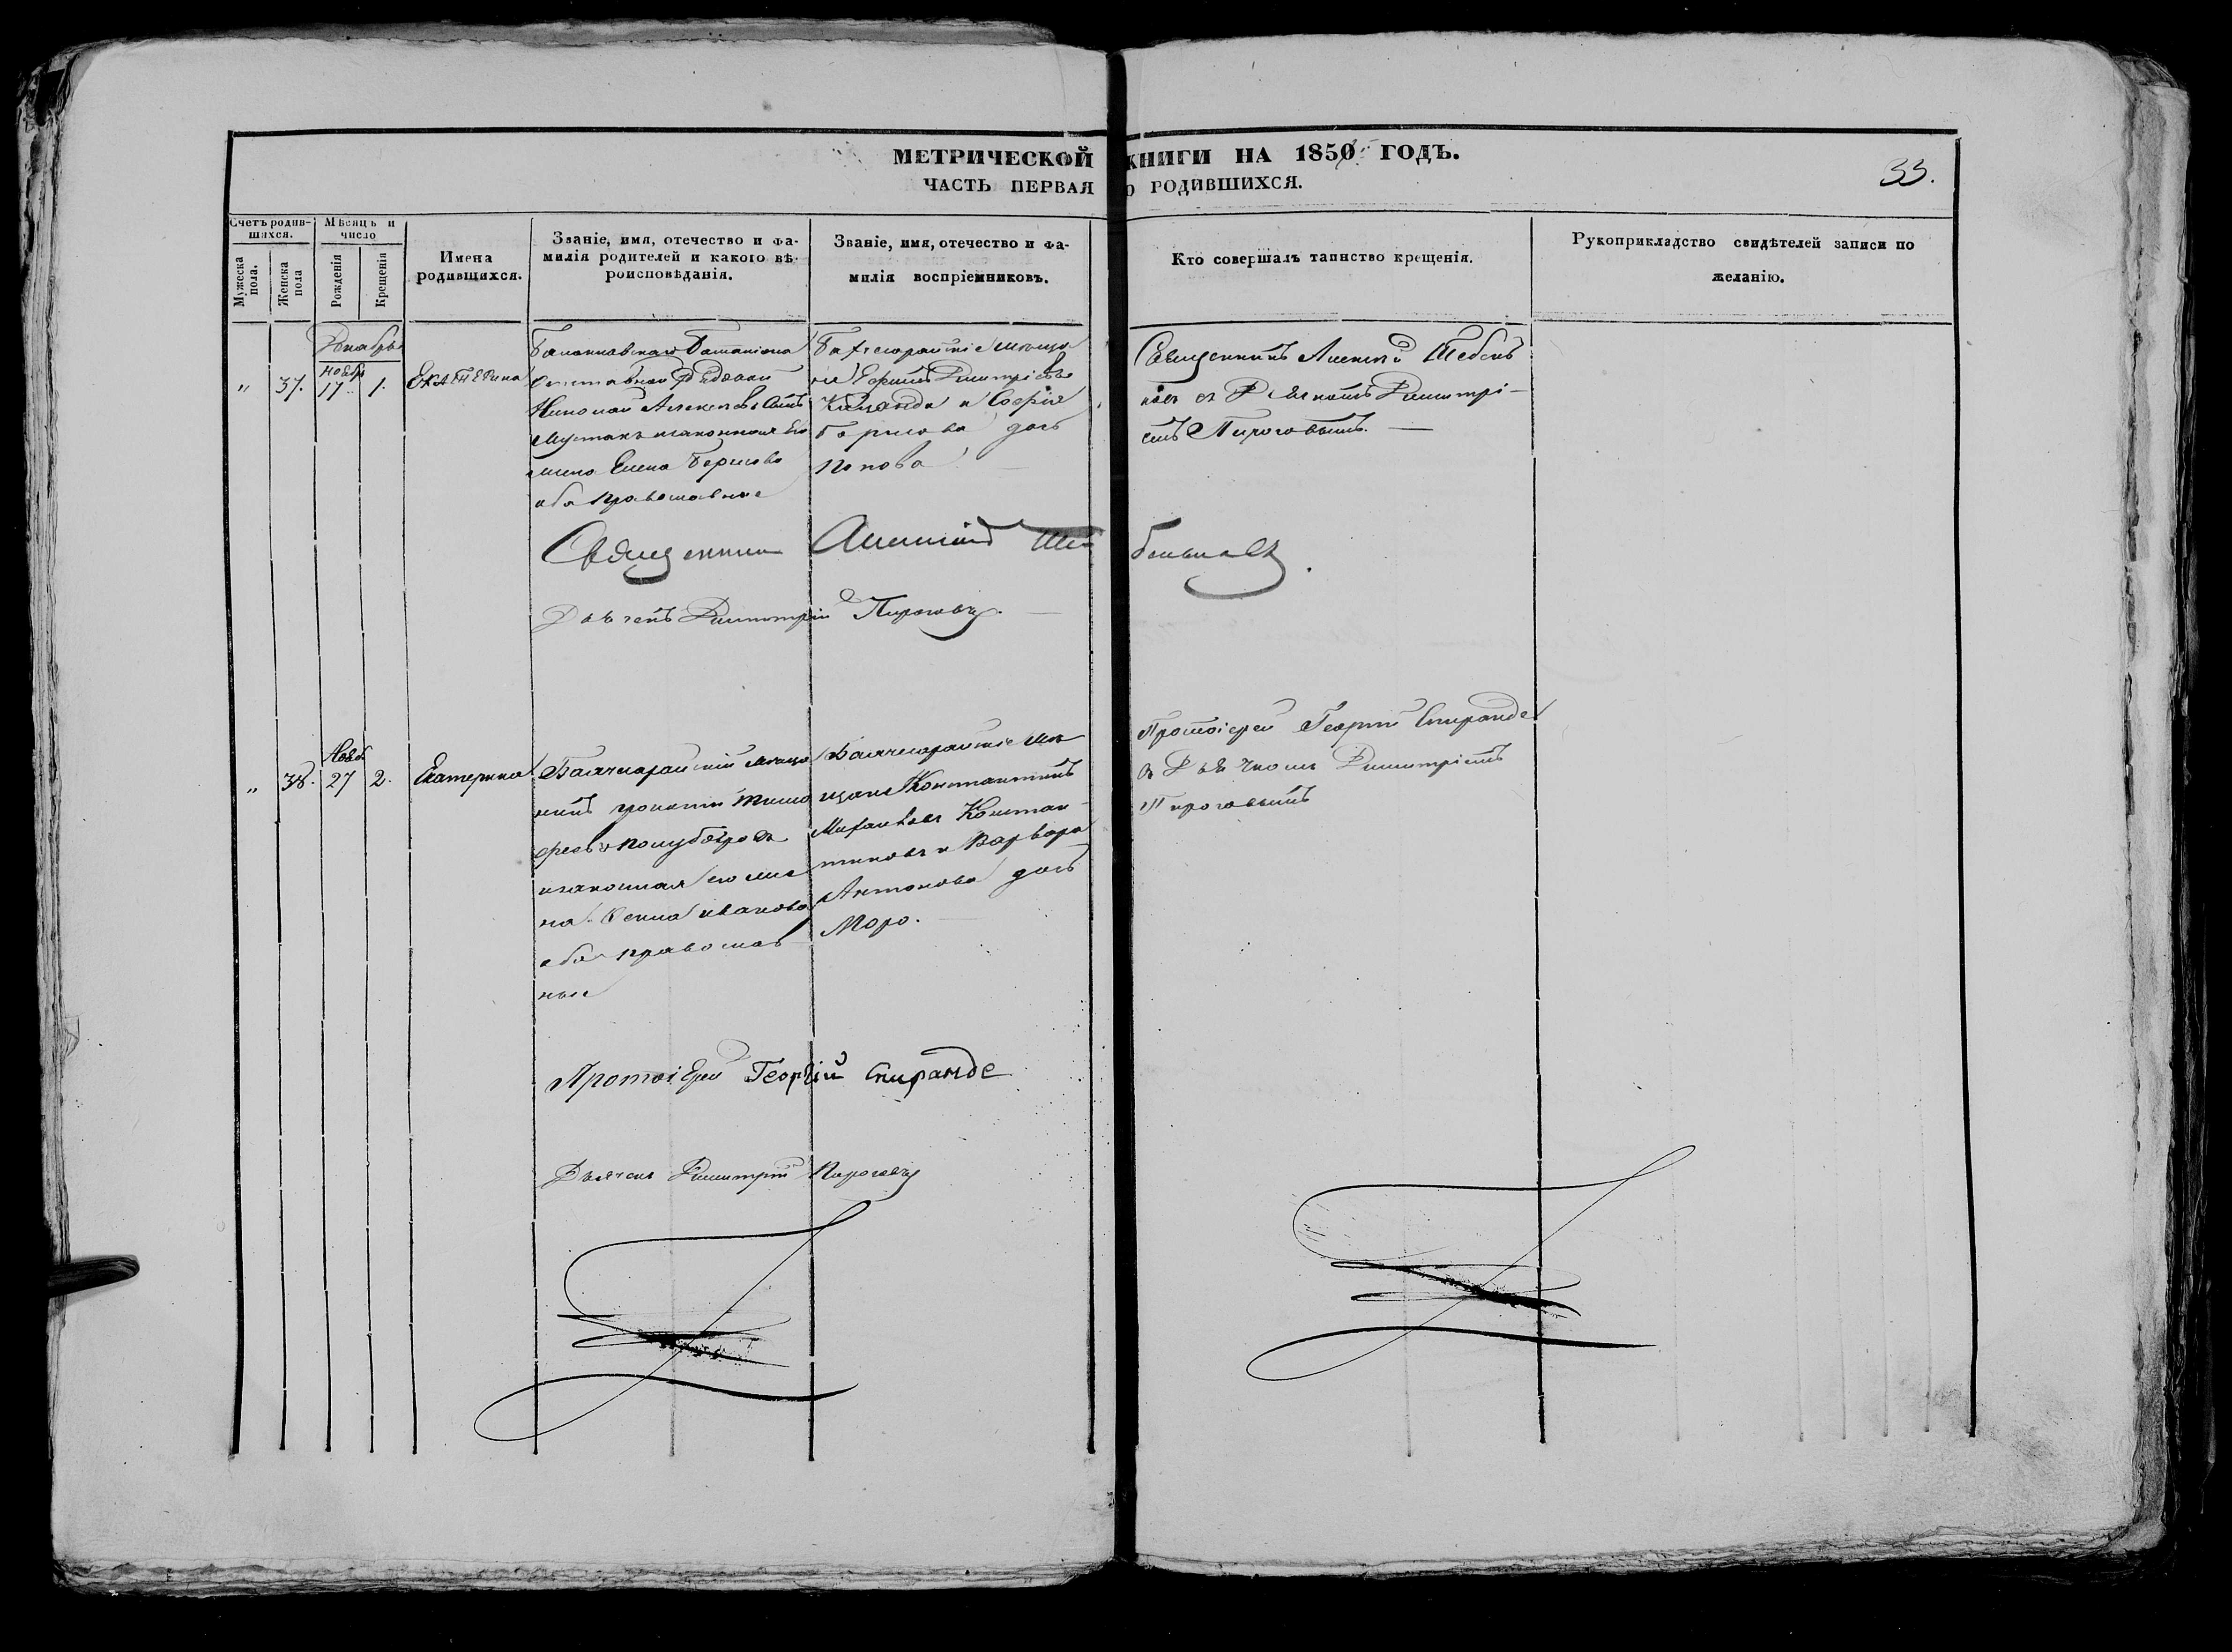 МЕТРИЧЕСКОЙ КНИГИ НА 1850 ГОДЪ.
ЧАСТЬ ПЕРВАЯ О РОДИВШИХСЯ.
33.
Счетъ родившихся.
Мужеска пола.
Женска пола
Мѣсяцъ и число
Рожденія
Крещенія
Имена родившихся.
Званіе, имя, отечество и фа-
милія родителей и какого вѣ-
роисповѣданія.
Званіе, имя, отечество и фа-
милія воспріемниковъ.
Кто совершалъ таинство крещенія.
Рукоприкладство свидѣтелей записи по
желанію.
Декабрь
Нояб
" 37. 17 1. Екатерина
Балаклавскаго Баталіона
отставной
Николай Алексѣевъ Сынъ
законная Его
жена Елена Борисова
оба православные
Димитріевъ
и Софія
Борисова дочь
Попова
Священникъ Алексій
съ Дьячкомъ Димитрі-
емъ Пироговымъ.
Священникъ Алексій
Дьячекъ Димитрій Пироговъ.
Нояб
" 38. 27 2. Екатерина
Бахчисарайскій мѣща
нинъ
законная его же
на Ксенія Иванова
оба православ
ные
Бахчисарайскіе мѣ
щане Константинъ
Михайловъ Констан
тиновъ и Варвара
Антонова дочь
Моро.
Протоіерей Георгій Спиранде
съ Дьячкомъ Димитріемъ
Пироговымъ
Протоіерей Георгій Спиранде
Дьячекъ Димитрій Пироговъ